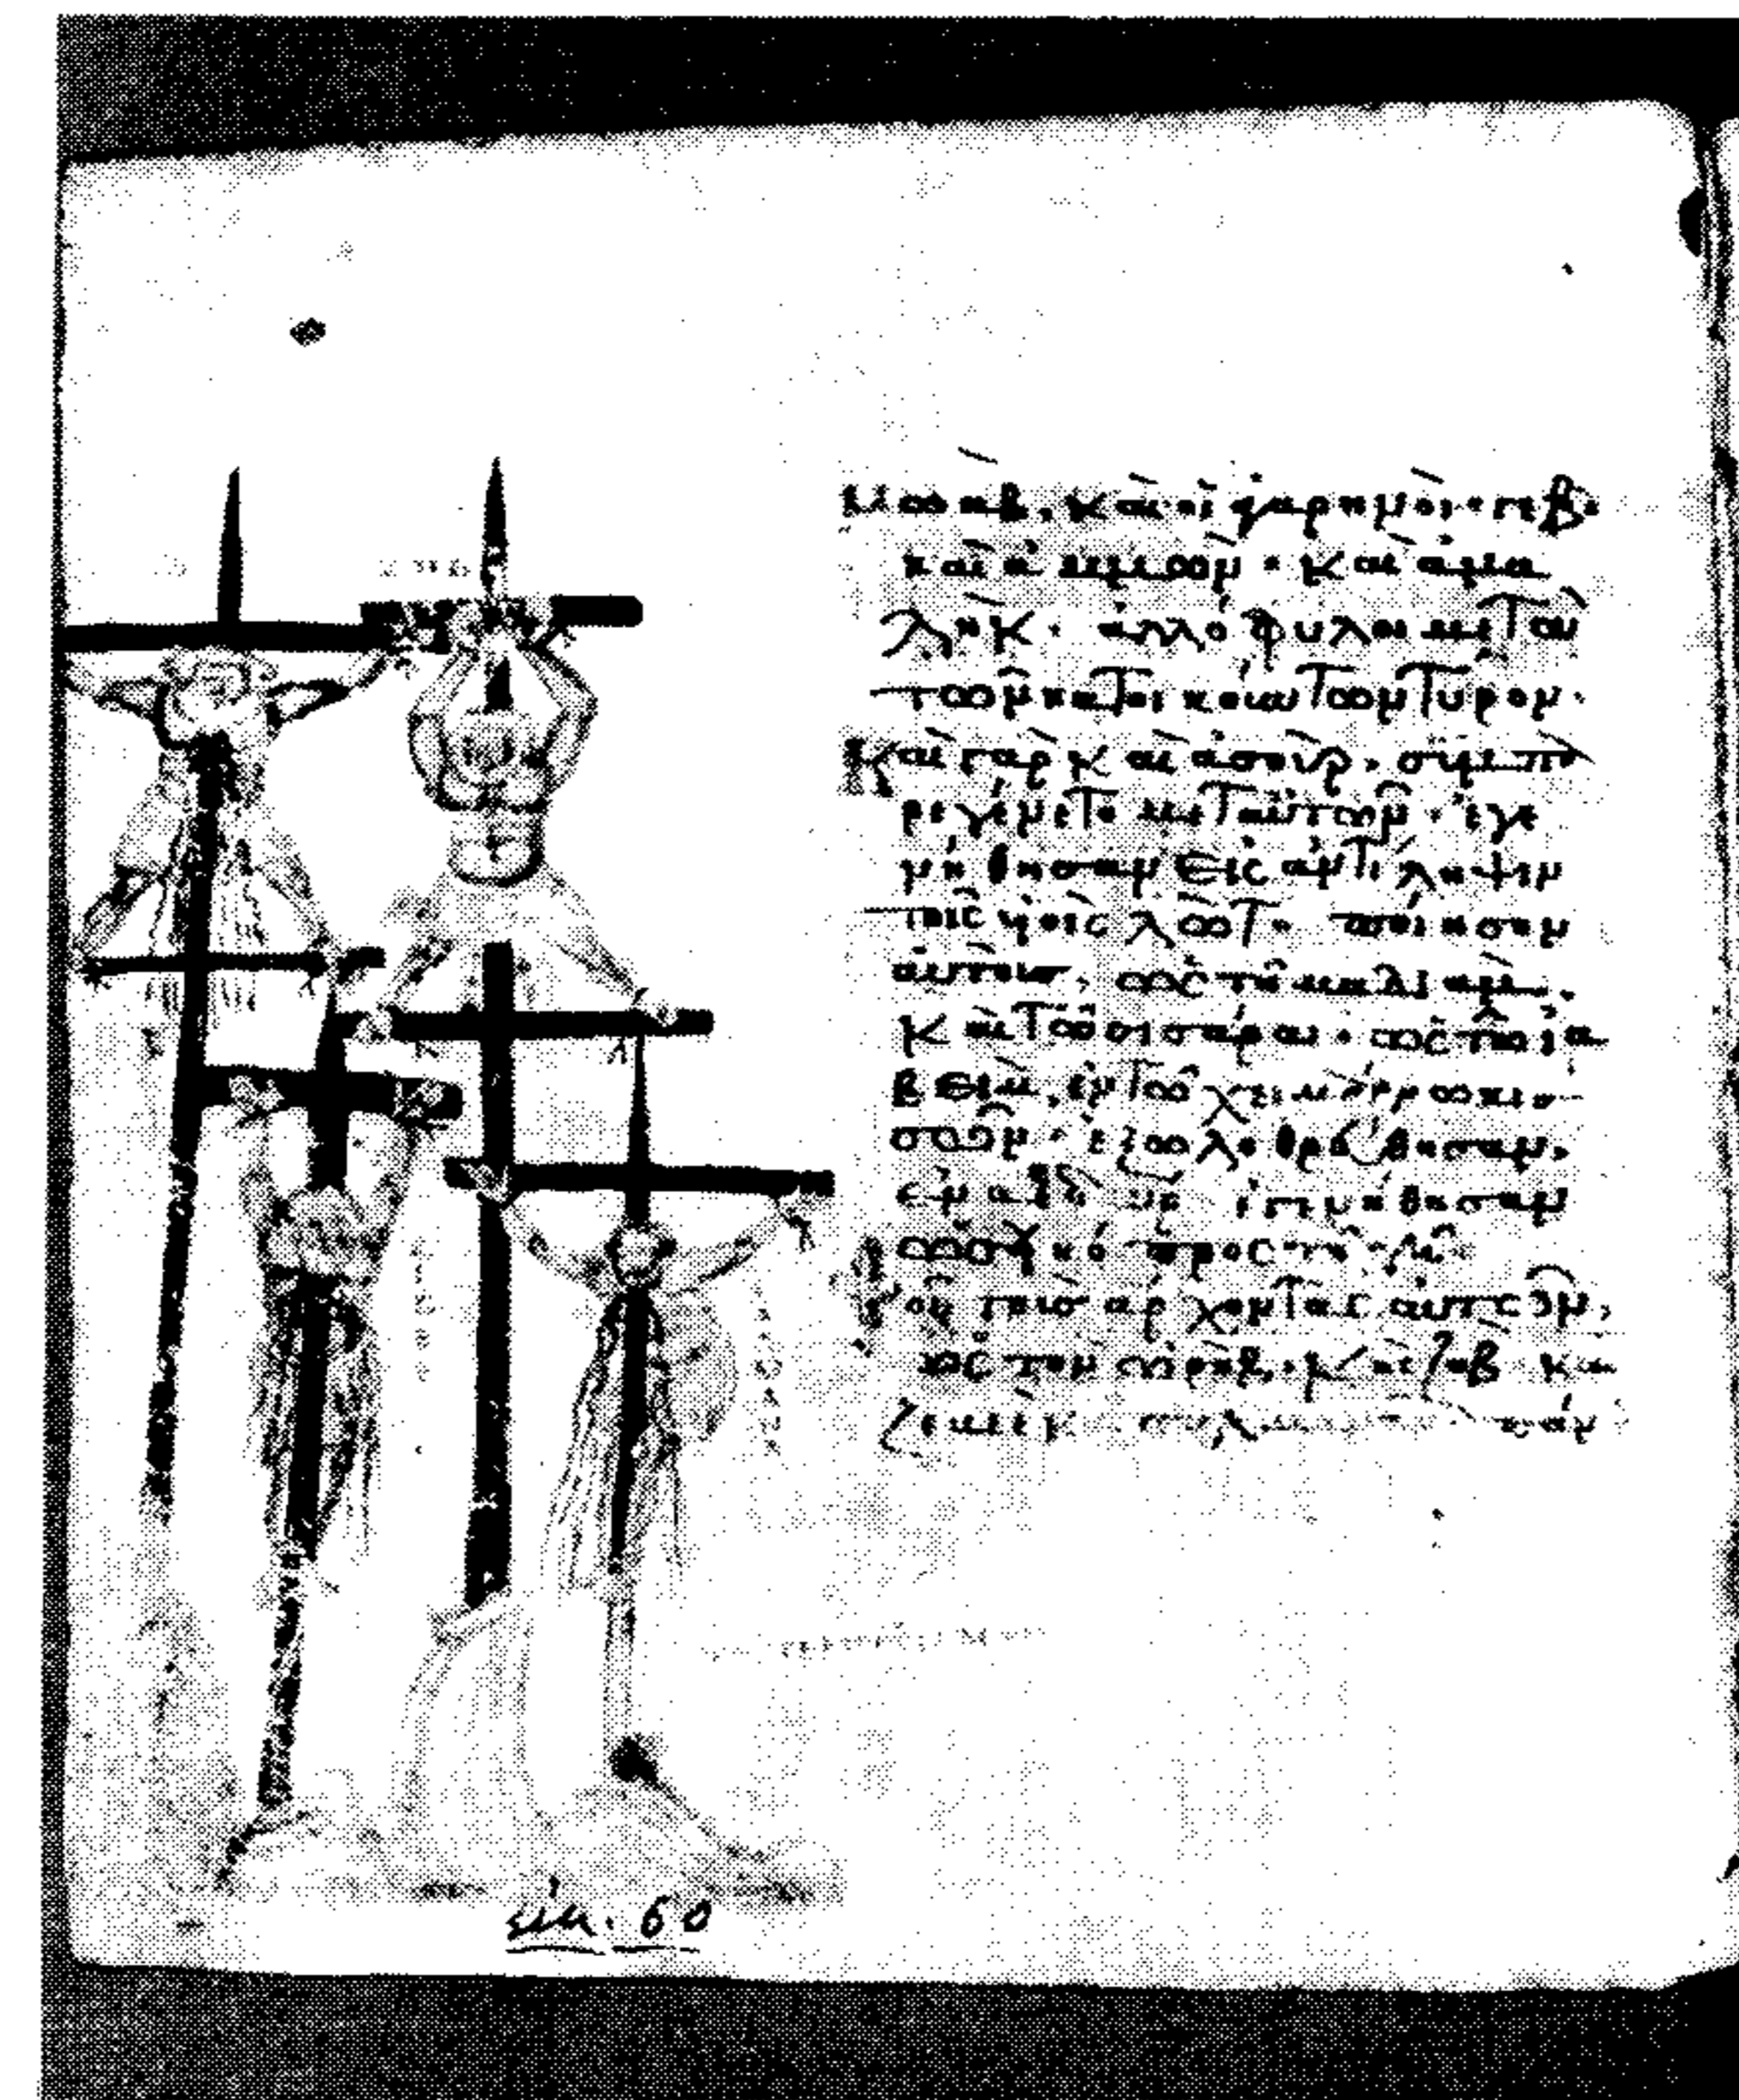 μωαβ, καὶ οἱ ἀγαρηνοί· γεβ
καὶ ἀμμὼν· καὶ ἀμα
λήκ· ἀλλόφυλοι μετὰ
τῶν κατοικούντων τύρον·
Καὶ γὰρ καὶ ἀσοὺρ, συμπα
ρεγένετο μετ αὐτῶν· ἐγε
νήθησαν εἰς ἀντίληψιν
τοῖς υἱοῖς λώτ· ποίησον
αὐτοῖς, ὡς τῆ μαδιὰμ,
καὶ τῶ σισάρα· ὡς τῶ ἰα
βεὶμ, ἐν τῶ χειμάρρω κισ
σῶν· ἐξωλοθρεύθησαν,
ἐν ἀενδὼρ ἐγενήθησαν
ὡσεὶ κό προς τῆ γῆ·
θοῦ τοὺσ ἄρχοντας αὐτῶν,
ὡς τὸν ὠρὴβ, καὶ ζὴβ καὶ
ζεβεὲ
εἰκ. 60